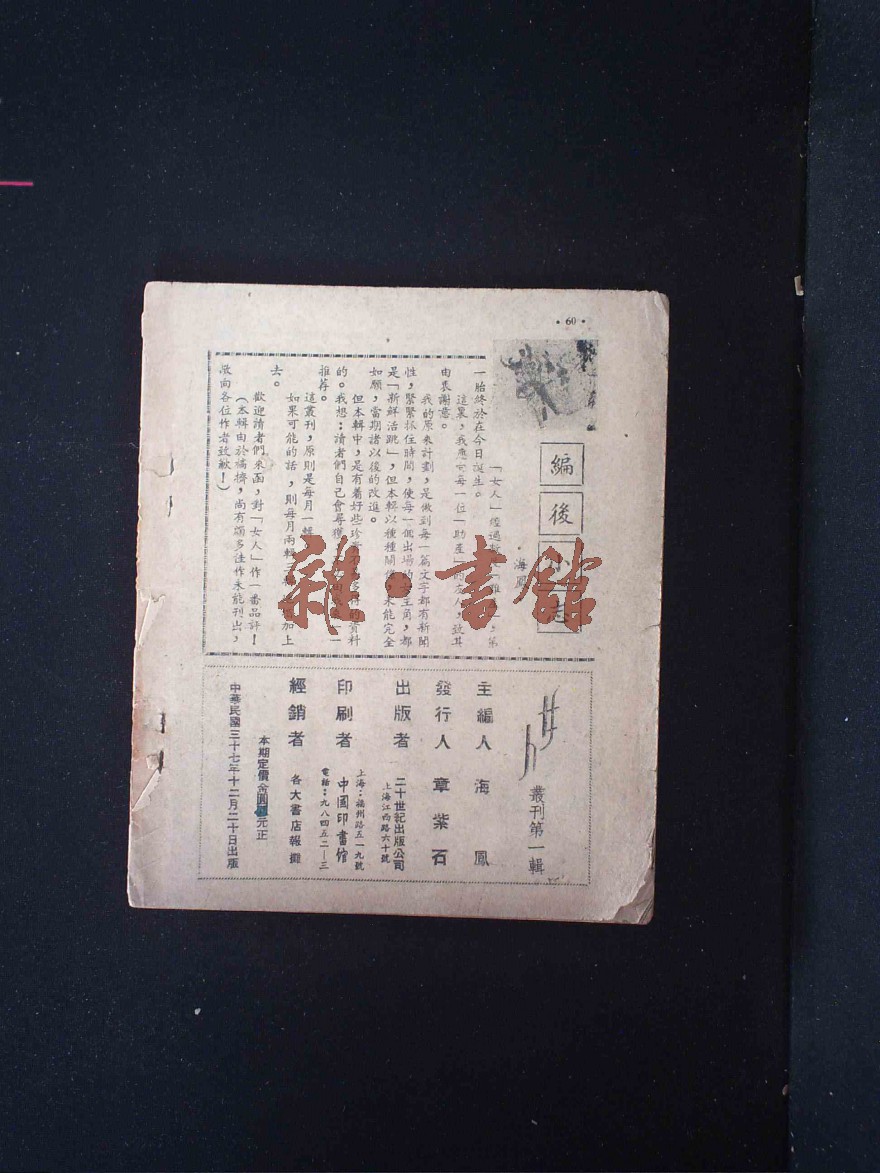 • 60 •
編後小志
• 海鳳
「女人」經過
第
一胎終於在今日誕生。
這裏,我應向每一位「助產」的友人,致其
由衷謝意。
我的原來計劃,是做到每一篇文字都有新聞
性,緊緊抓住時間,使每一個出場的女主角,都
是「新鮮活跳」,但本輯以種種關係,未能完全
如願,當期諸以後的改進。
但本輯中,是有着好些珍貴不可多得的資料
的。我想:讀者們自己會尋獲,
一一
推荐。
這叢刊,原則是每月一輯,
如果可能的話,則每月兩輯三輯
加上
去。
歡迎讀者們來函,對「女人」作一番品評!
(本輯由於稿擠,尚有頗多佳作未能刊出,
敬向各位作者致歉!)
女人
叢刊第一輯
主編人 海鳳
發行人 章紫石
出版者 二十世紀出版公司
上海江西路六十號
印刷者 中國印書館
上海:福州路五一九號
電話:九八四五二—三
經銷者 各大書店報攤
本期定價金圓 元正
中華民國三十七年十二月二十日出版
雜·書館